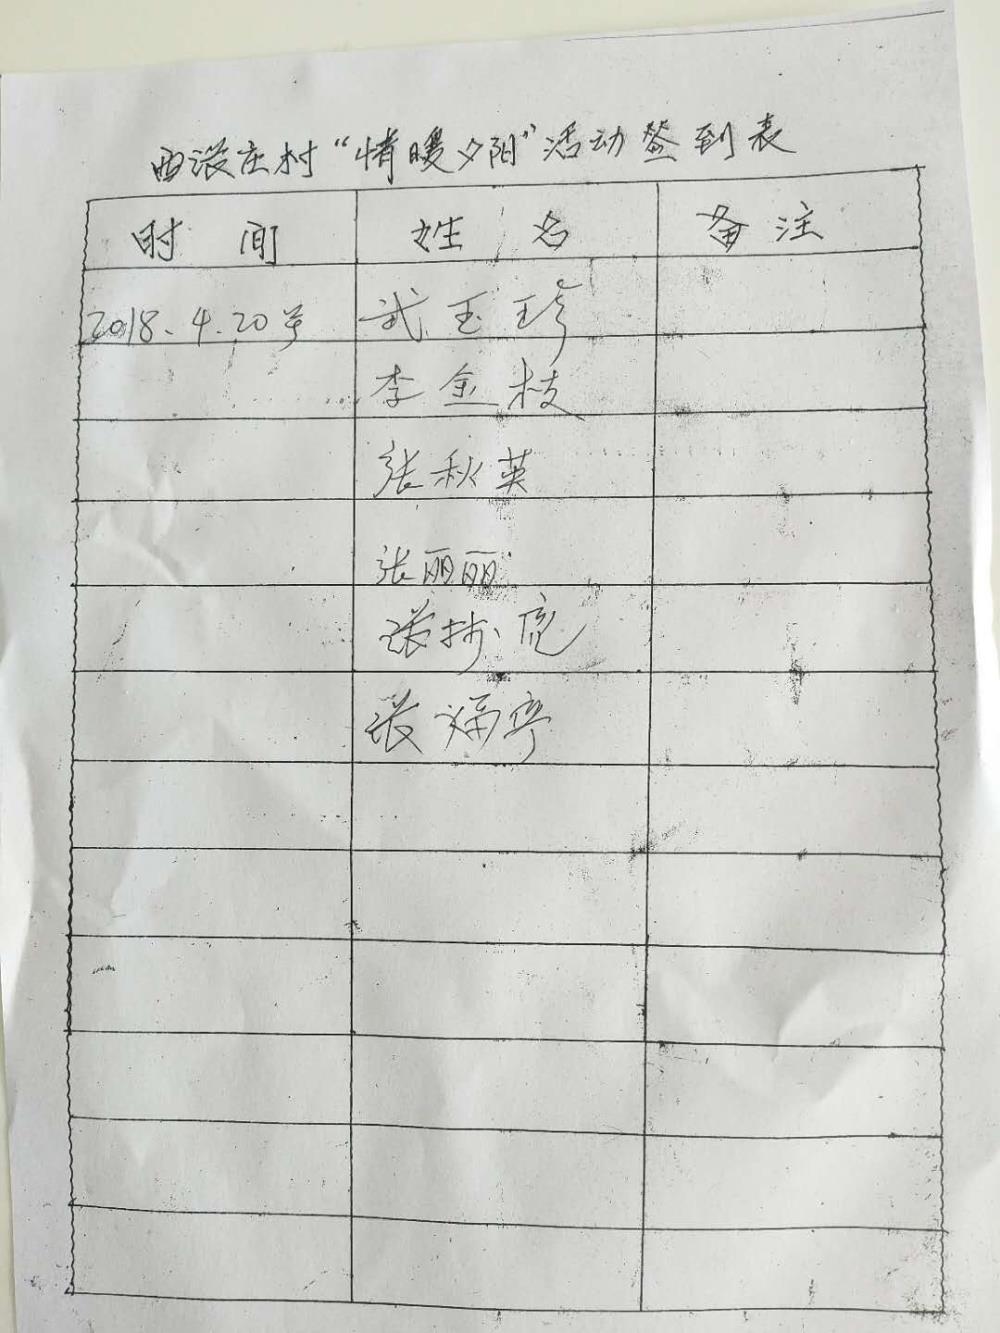 西张庄村“情暖夕阳”活动签到表
时间 姓名 备注
2018.4.20号 武玉珍
李金枝
张秋英
张丽丽
张
张